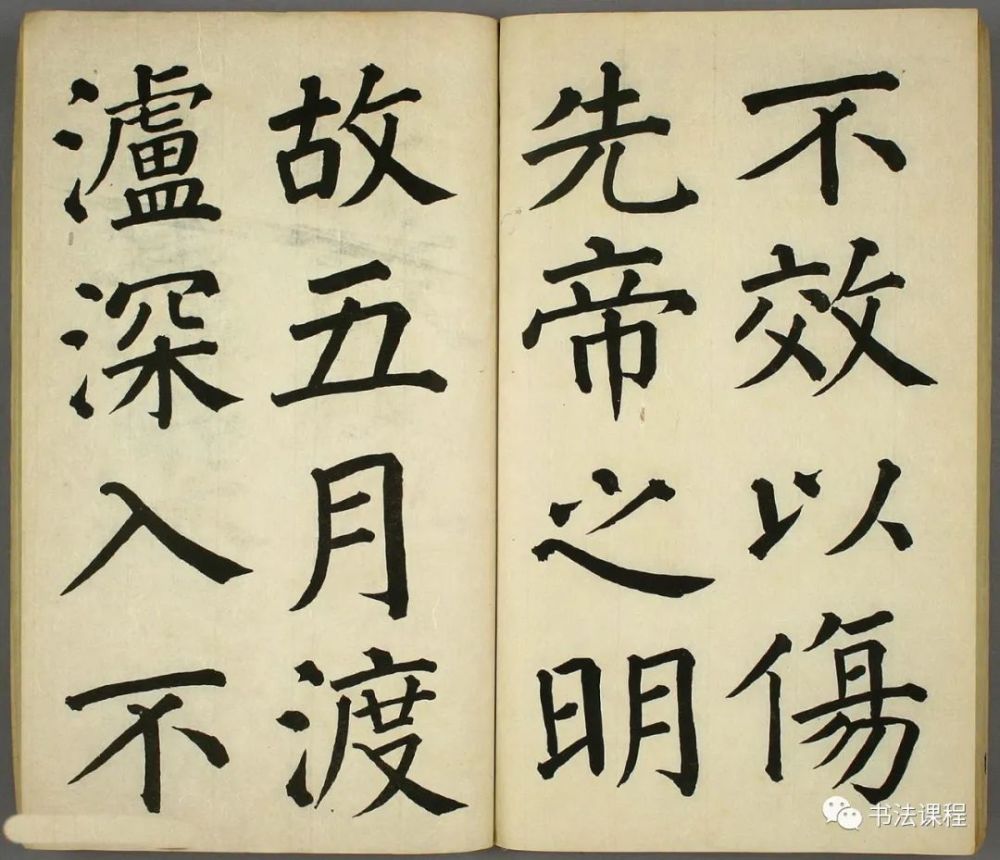 不效以傷
先帝之明
故五月渡
瀘深入不
书法课程